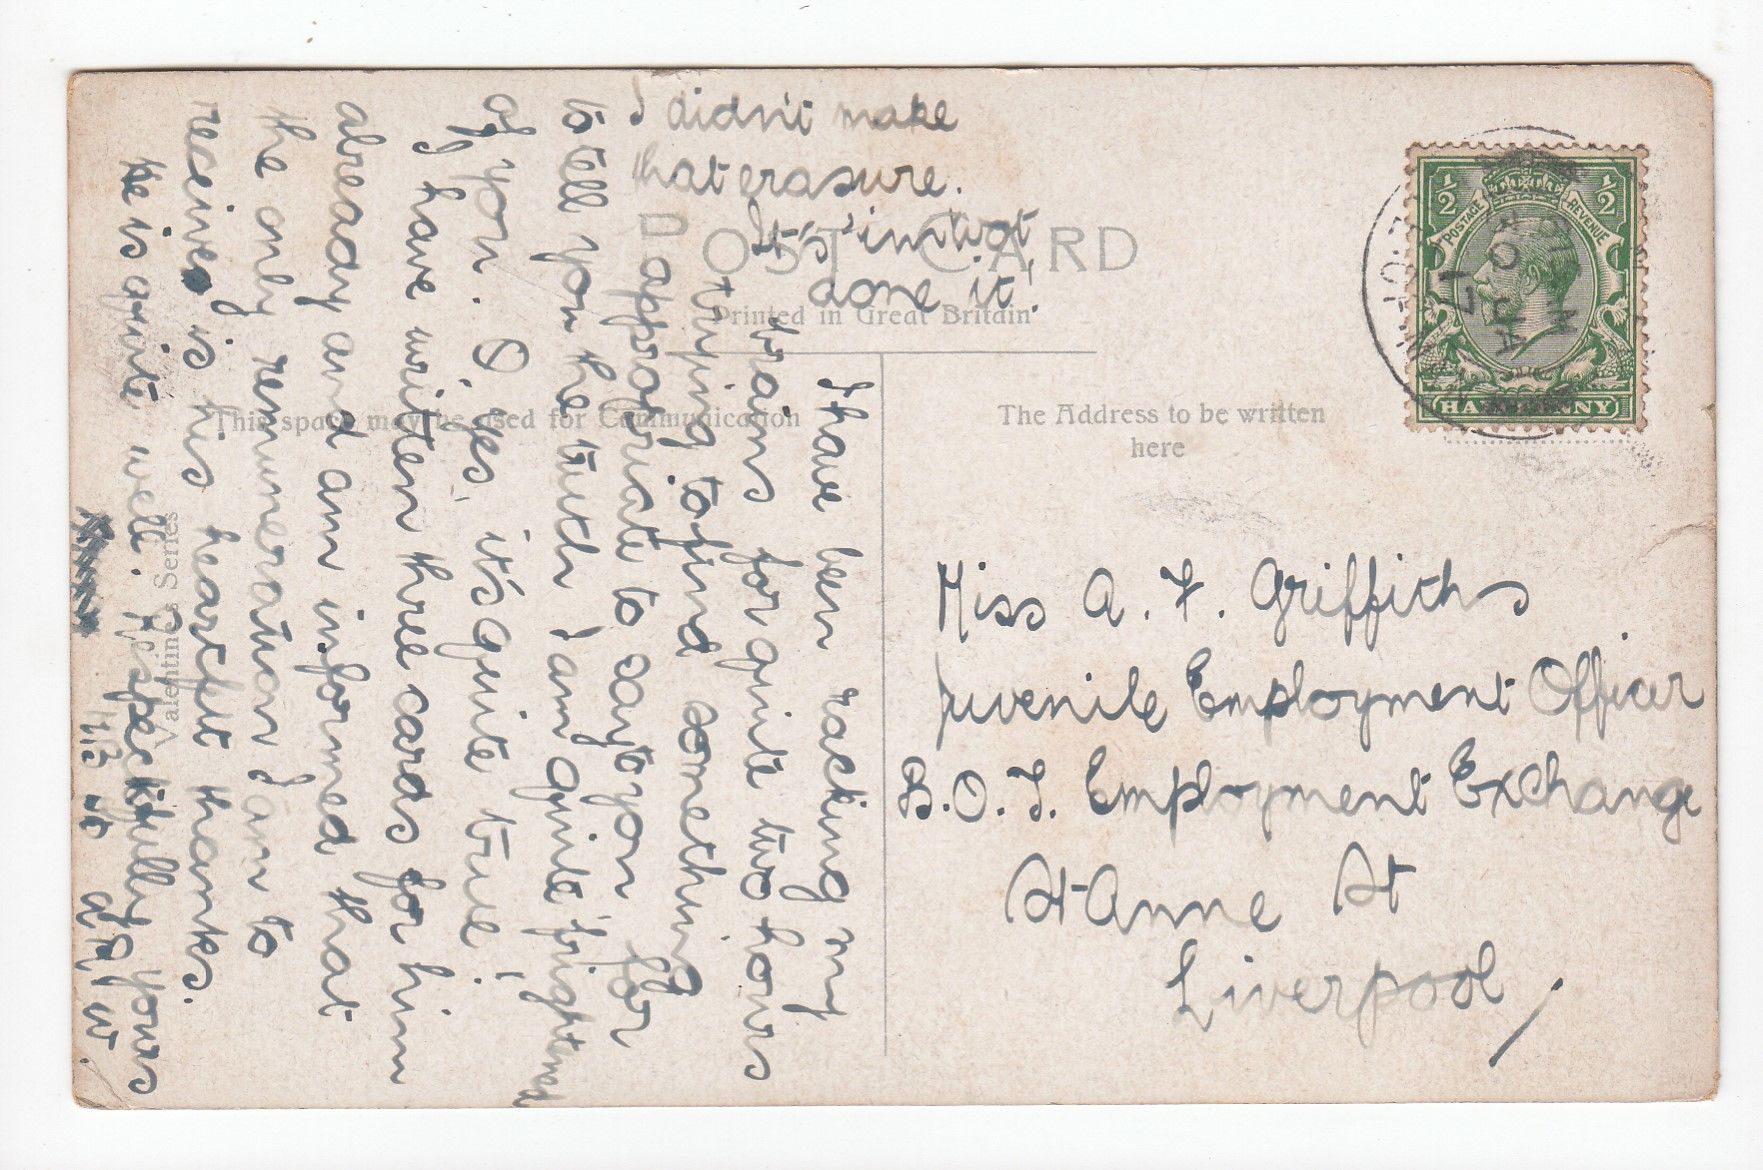 I didn't make
that erasure.
It's
done it!
POST CARD
Printed in Great Britain
This space may be used for Communication
The Address to be written
here
Valentine's Series
½ ½
POSTAGE REVENUE
HALFPENNY
I have been racking my
brains for quite two hours
trying to find something
appropriate to say to you for
to tell you the truth I am quite 'frightened
of you. O, yes, it's quite true!
I have written three cards for him
already and am informed that
the only remuneration I am to
receive is his heartfelt thanks.
He is quite well. Respectfully yours
Miss A. F. Griffiths
Juvenile Employment Officer
B.O.T. Employment Exchange
St Anne St
Liverpool